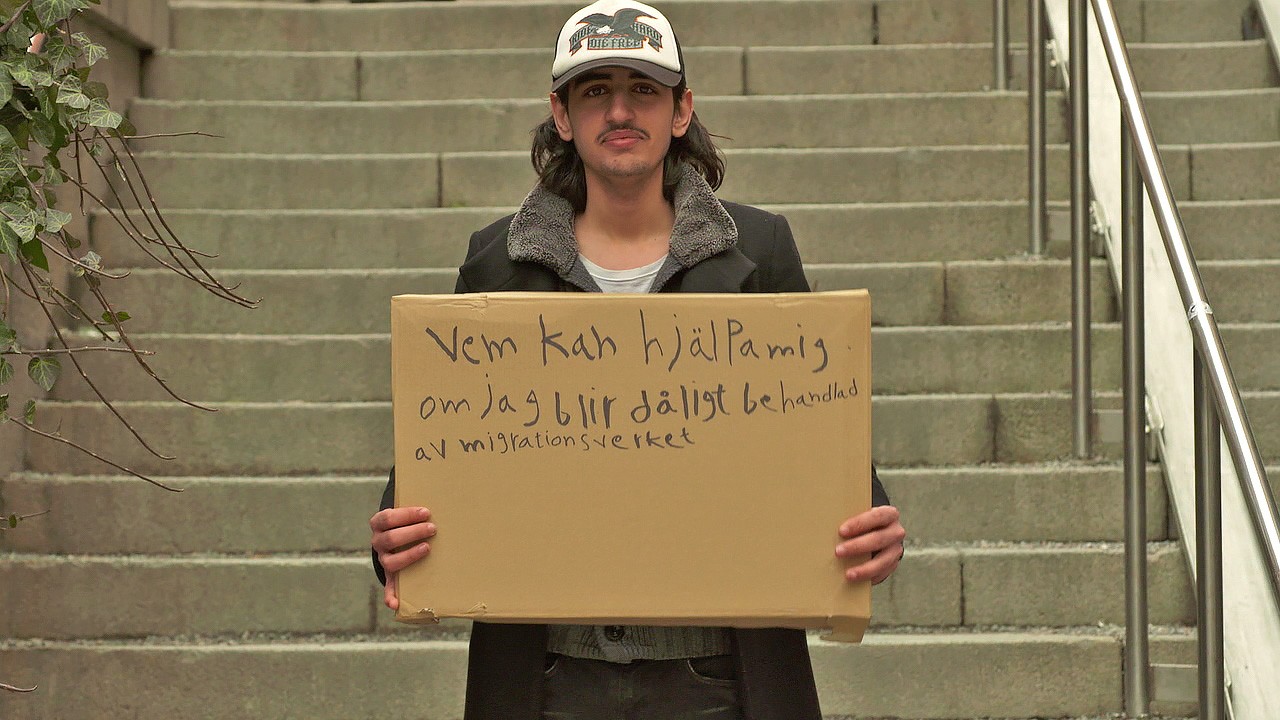 RIDE HARD
DIE FREE
Vem kan hjälpa mig
om jag blir dåligt behandlad
av migrationsverket